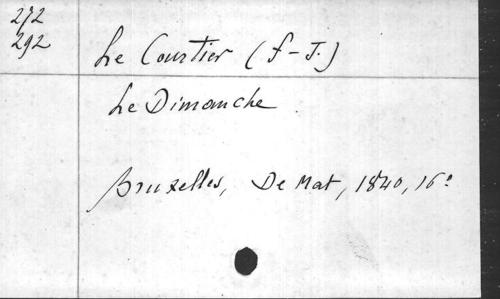 272
292
Le Courtier (f-J.)
Le Dimanche
Bruxelles, De Mat, 1840, 16º